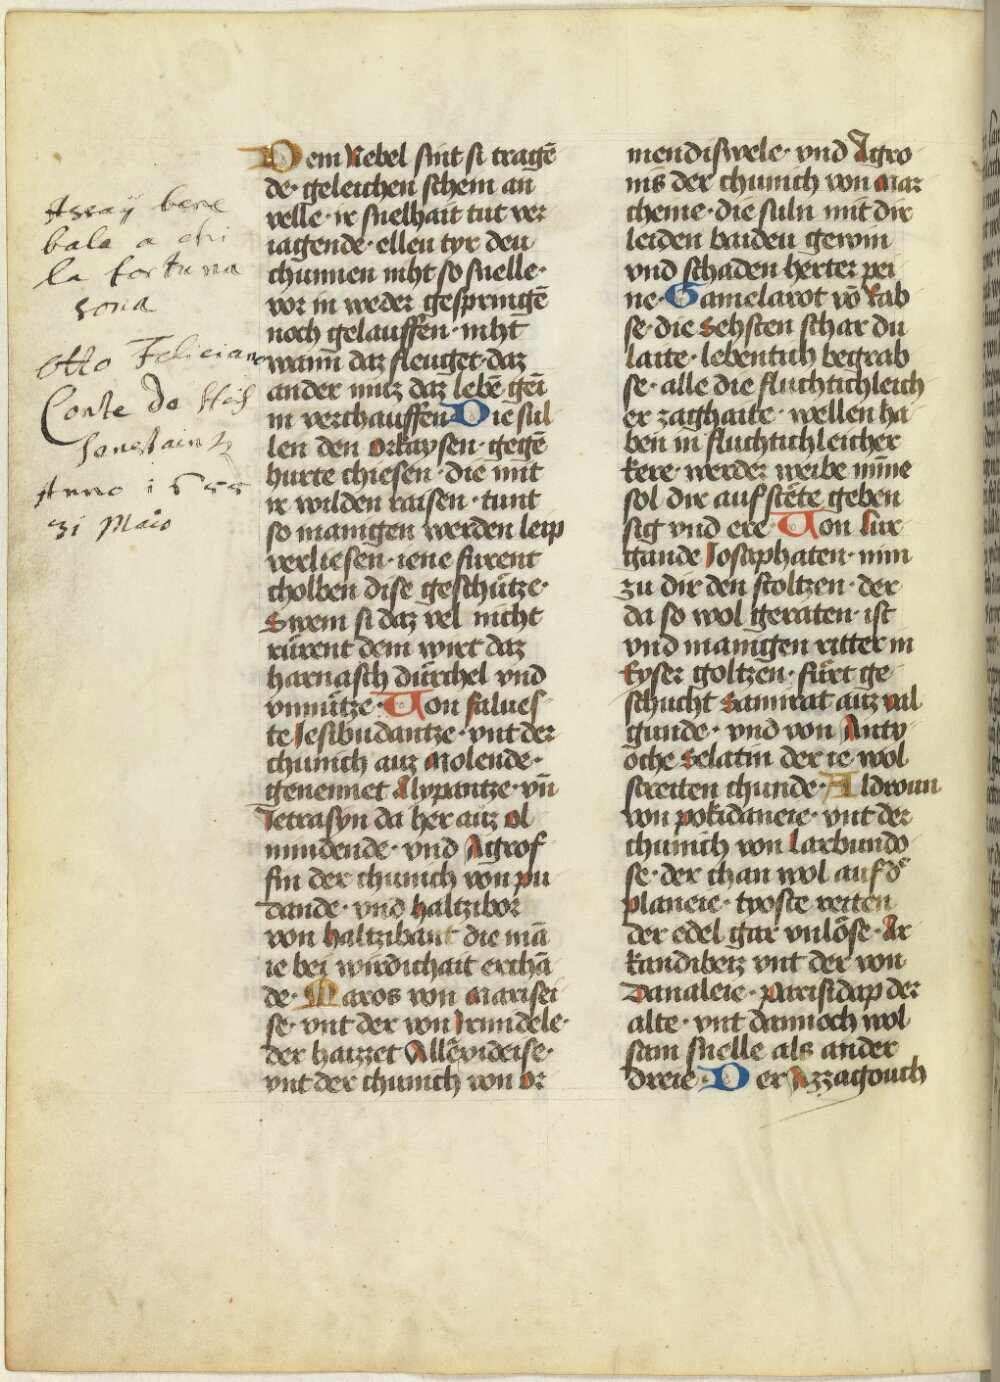 Assay bene
bala a chi
la fortuna
sona
Otto Felician
Conte de
Anno 1655
31 Maio
Dem Nebel sint si tragē
de· geleichen schem an
velle· ir snelhait tut ver
iagende· elleu tyr deu
chunnen niht so snelle·
vor in weder gespringē
noch gelauffen· niht
wann daz fleuget· daz
ander muz daz lebē gei
in verchauffen· Die sul
len den orkaysen· gegē
hurte chiesen· die mit
ir wilden raisen· tunt
so manigen werden leip
verliesen· iene furent
cholben dise geschütze·
Swem si daz vel nicht
rürent dem wirt daz
harnasch dürchel vnd
vnnütze· Von salues
te Iesibudantze· vnt der
chunich auz Molende·
genennet Alypantze· vn̄
Tetrasyn da her auz ol
mindende· vnd Agrof
fin der chunich von pu
dande· vnd haltzibor
von haltzibant die mā
ie bei wirdichait erchā
de· Maros von Marisei
se· vnt der von Irundele·
der haizzet Allēvideise·
vnt der chunich von or
mendiswele· vnd Agro
nis der chunich von mar
cheine· die suln mit dir
leiden baideu gewin
vnd schaden herter pei
ne· Gamelarot vō Rab
se· die Sehsten schar du
laite· lebentich begrab
se· alle die fluchtichleich
er zaghaite· wellen ha
ben in fluchtichleicher
kere· werder weibe minne
sol dir auf stete geben
sig vnd ere· Von lur
gande Iosaphaten· nim
zu dir den stoltzen· der
da so wol geraten· ist
vnd manigen ritter in
Eyser goltzen· fürt ge
schucht Samirat auz val
gunde· vnd von Anty
oche Selatin der ie wol
streiten chunde· Aldroun
von pokidaneie· vnt der
chunich von larbundo
se· der chan wol auf dˢ
planeie· tyoste reiten
der edel gar vnlöse· Ar
kandibeiz vnt der von
Danaleie· parisidap der
alte· vnt dannoch wol
sam snelle als ander
dreie· Der Azzagouch